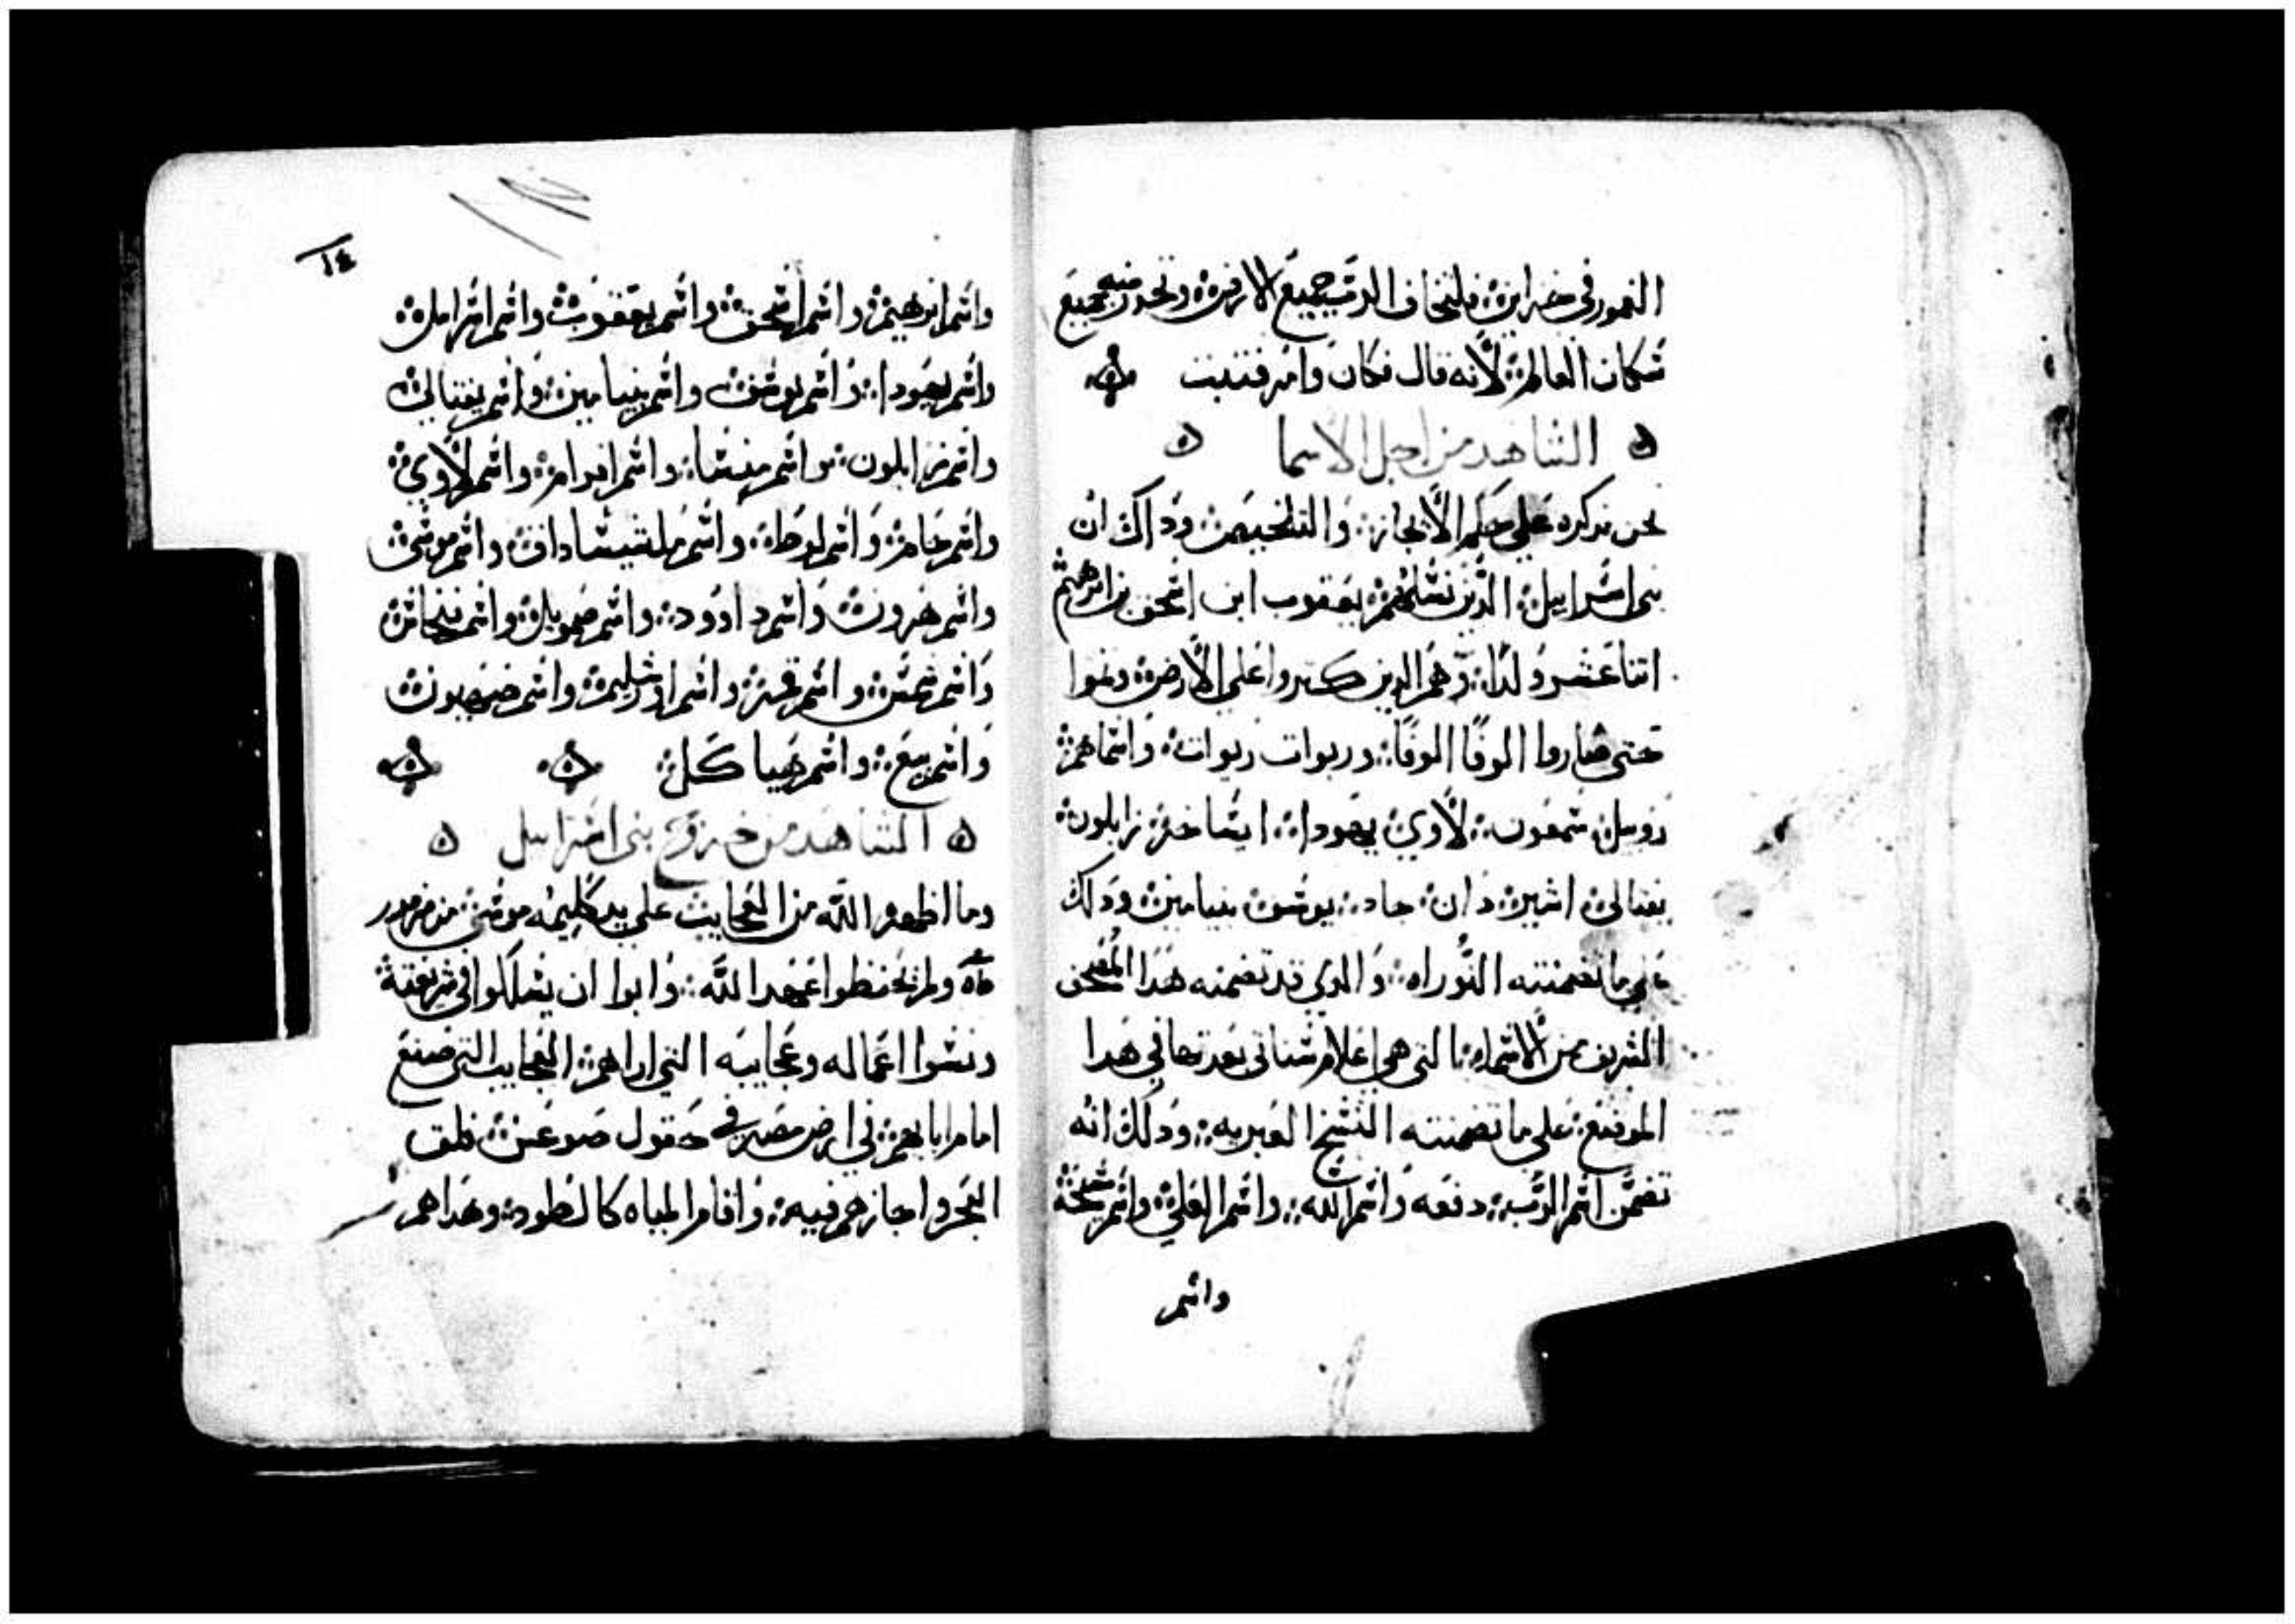 الغمور في خزاين فليخاف الرب جميع الارض وتحذر منه جميع
سكان العالم لانه قال فكان وامر فثبتت
الشاهد من اجل الاسما
نحن نذكره علي حكم الايجاز والتلخيص وداك ان
بني اسراييل الذين نسلهم يعقوب ابن اسحق بن ابرهيم
اتنا عشر ولدا وهم الدين كتروا علي الارض ونموا
حتي صاروا الوفا الوفا وربوات ربوات واسماهم
روبيل شمعون لاوي يهودا ايساخر زابلون
يفتالي اشير دان جاد يوسف بنيامين ودلك
علي ما تضمنته التوراه والدي قد تضمنه هدا المصحف
الشريف من الاسماء التي هي اعلام سناتي بعدتها في هدا
الموضع علي ما تضمنته النسخ العبريه ودلك انه
تضمن اسم الرب دفعه واسم الله واسم العلي واسم
واسم
١٤
واسم ابرهيم واسم اسحق واسم يعقوب واسم اسراييل
واسم يهودا واسم يوسف واسم بنيامين واسم يفتالي
واسم زابلون واسم منشا واسم افرام واسم لاوي
واسم حام واسم لوط واسم ملشيساداق واسم موسي
واسم هرون واسم داوود واسم صمويل واسم فنحاس
واسم شمس واسم قمر واسم اورشليم واسم صهيون
واسم بيع واسم هياكل
الشاهد من خروج بني اسراييل
وما اظهر الله من العجايب علي يد كليمه موسي من مزمور
ولم يحفظوا عهد الله وابوا ان يسلكوا في شريعته
ونسوا اعماله وعجايبه التي اراهم العجايب التي صنع
امام ابايهم في ارض مصر في حقول صوعن فلق
البحر واجازهم فيه واقام المياه كالطود وهداهم